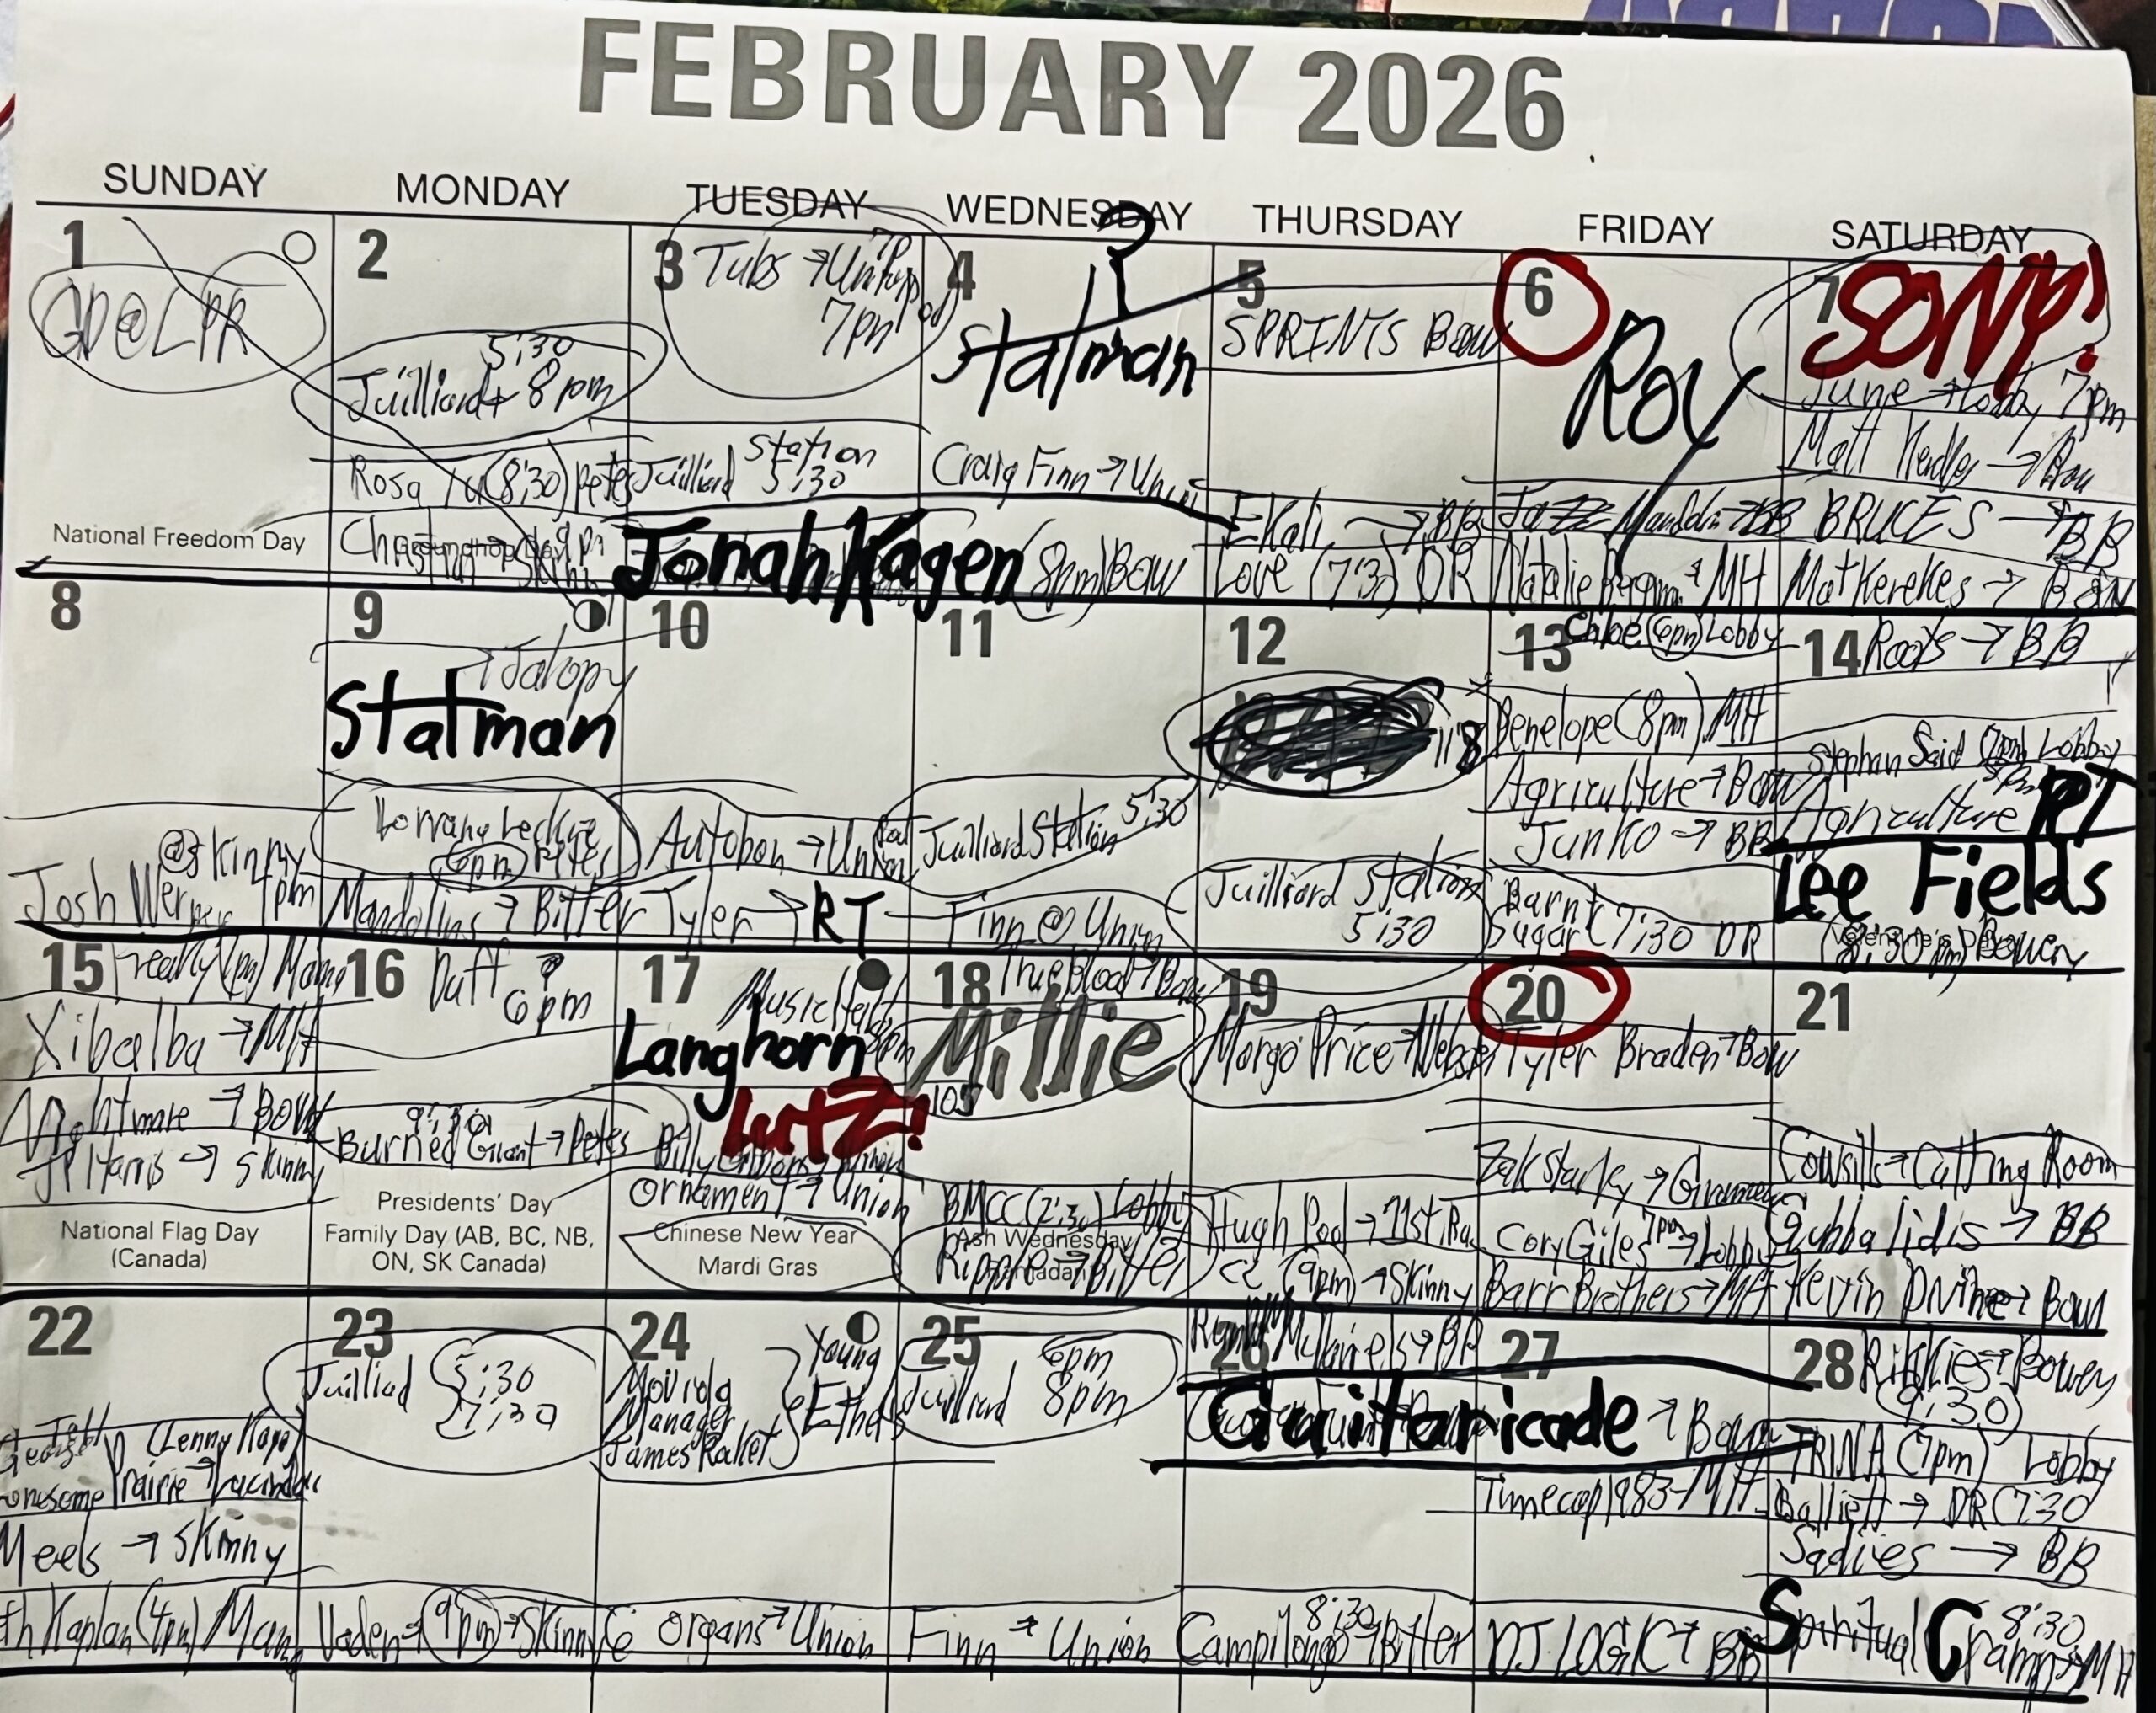 FEBRUARY 2026
SUNDAY MONDAY TUESDAY WEDNESDAY THURSDAY FRIDAY SATURDAY
1
GD@LPR
National Freedom Day
2
5:30
Juilliard + 8pm
Rosa (8:30) Petes
Groundhog Day
3
Tubs → 
7pm
Juilliard Station
5:30
Jonah Kagen (8pm) Bow
4
?
Statman
Craig Finn → Union
5
SPRINTS Bow
Ekali → BB
Love (7:30) DR
6
Roy
Jazz Mandolin → BB
Natalie → MH
7
SONY!
June → Lobby 7pm
Matt → Bow
BRUCES → BB
Mat Kerekes → B&N
8
@Skinny
Josh Werner 1pm
9
Jalopy
Statman
6pm Petes
Mandolins → Bitter
10
Autobon → Union
Tyler → RT
11
Juilliard Station 5:30
Finn @ Union
12
8
Juilliard Station
5:30
13
Chloe (6pm) Lobby
Penelope (8pm) MH
Agriculture → Bow
Junko → BB
Barnt
Sugar (7:30 DR
14
Roots → BB
Stephan Said Lobby
Agriculture RT
Lee Fields
Valentine's Day
(8:30pm) Bowery
15
Xibalba → MH
Nightmare → Bow
JP Harris → Skinny
National Flag Day
(Canada)
16
Duff ?
6pm
9:30
Burned Giant → Petes
Presidents' Day
Family Day (AB, BC, NB,
ON, SK Canada)
17
Langhorn
Lutz!
Billy
Ornament → Union
Chinese New Year
Mardi Gras
18
Millie
BMCC (2:30) Lobby
Ash Wednesday
Ripple → Bitter
19
Margo Price → Webster
Hugh Pool → 11st Bar
(9pm) → Skinny
20
Tyler Braden → Bow
Zak Starky → Gramercy
Cory Giles 7pm → Lobby
Barr Brothers → MH
21
Cowsills → Cutting Room
→ BB
Kevin Divine → Bow
22
(Lenny Kaye)
Prairie →
Meels → Skinny
Kaplan (4pm)
23
Juilliard 5:30
7:30
Vaden → 9pm → Skinny
24
Young
Ethels
Manager
James Raket
6 Organs → Union
25
Juilliard 6pm
8pm
Finn → Union
26
→ BB
Guitaricade → Bow
8:30
Campilongo → Bitter
27
Timecop1983 - MH
DJ LOGIC → BB
28
→ Bowery
(9:30)
TRINA (7pm) Lobby
Balliett → DR (7:30
Sadies → BB
Spiritual Cramp → MH
8:30